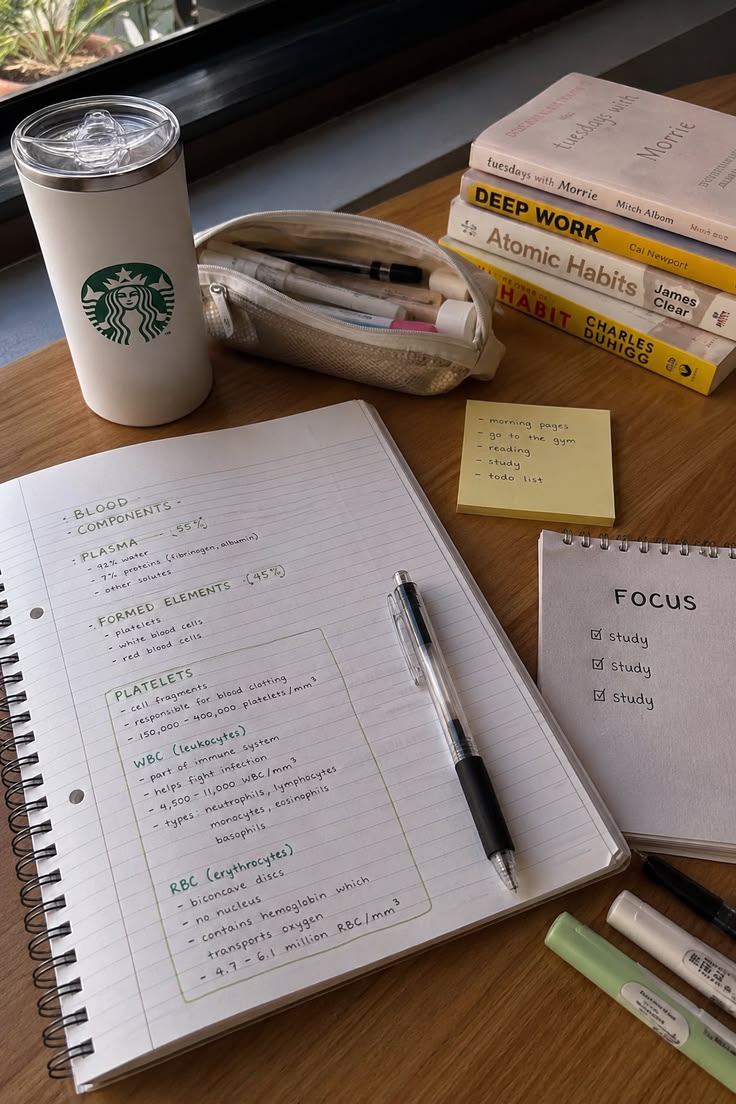 tuesdays with
Morrie
tuesdays with Morrie Mitch Albom
DEEP WORK Cal Newport
Atomic Habits James
Clear
HABIT CHARLES
DUHIGG
- morning pages
- go to the gym
- reading
- study
- todo list
FOCUS
☑ study
☑ study
☑ study
· BLOOD
· COMPONENTS ·
· PLASMA (55%)
- 92% water
- 7% proteins (fibrinogen, albumin)
- other solutes
· FORMED ELEMENTS · (45%)
- platelets
- white blood cells
- red blood cells
PLATELETS
- cell fragments
- responsible for blood clotting
- 150,000 - 400,000 platelets/mm³
WBC (leukocytes)
- part of immune system
- helps fight infection
- 4,500 - 11,000 WBC/mm³
- types: neutrophils, lymphocytes
monocytes, eosinophils
basophils
RBC (erythrocytes)
- biconcave discs
- no nucleus
- contains hemoglobin which
transports oxygen
- 4.7 - 6.1 million RBC/mm³